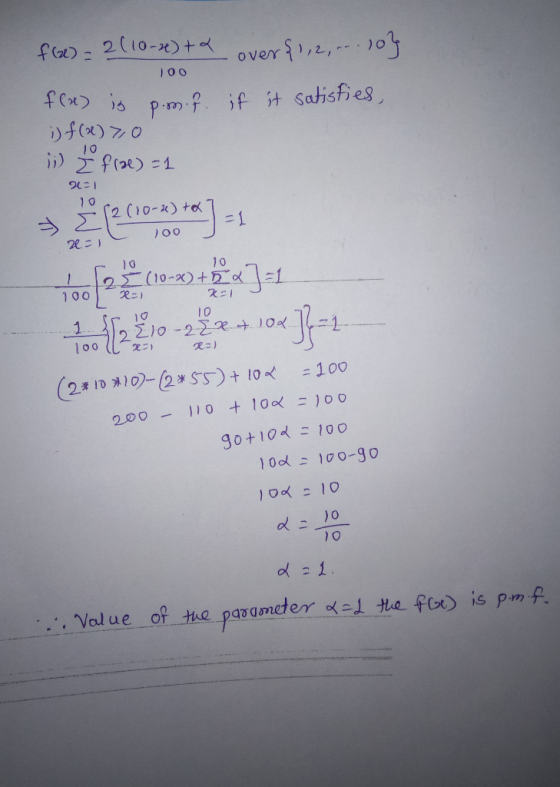 f(x) = 2(10-x)+α / 100 over {1,2, ... 10}
f(x) is p.m.f. if it satisfies,
i) f(x) ≥ 0
ii) 10 Σ x=1 f(x) = 1
⇒ 10 Σ x=1 [2(10-x)+α / 100] = 1
1/100 [2 10 Σ x=1 (10-x) + 10 Σ x=1 α] = 1
1/100 {[2 10 Σ x=1 10 - 2 10 Σ x=1 x + 10α]} = 1
(2*10*10)-(2*55)+10α = 100
200 - 110 + 10α = 100
90+10α = 100
10α = 100-90
10α = 10
α = 10/10
α = 1.
∴ Value of the parameter α=1 the f(x) is p.m.f.